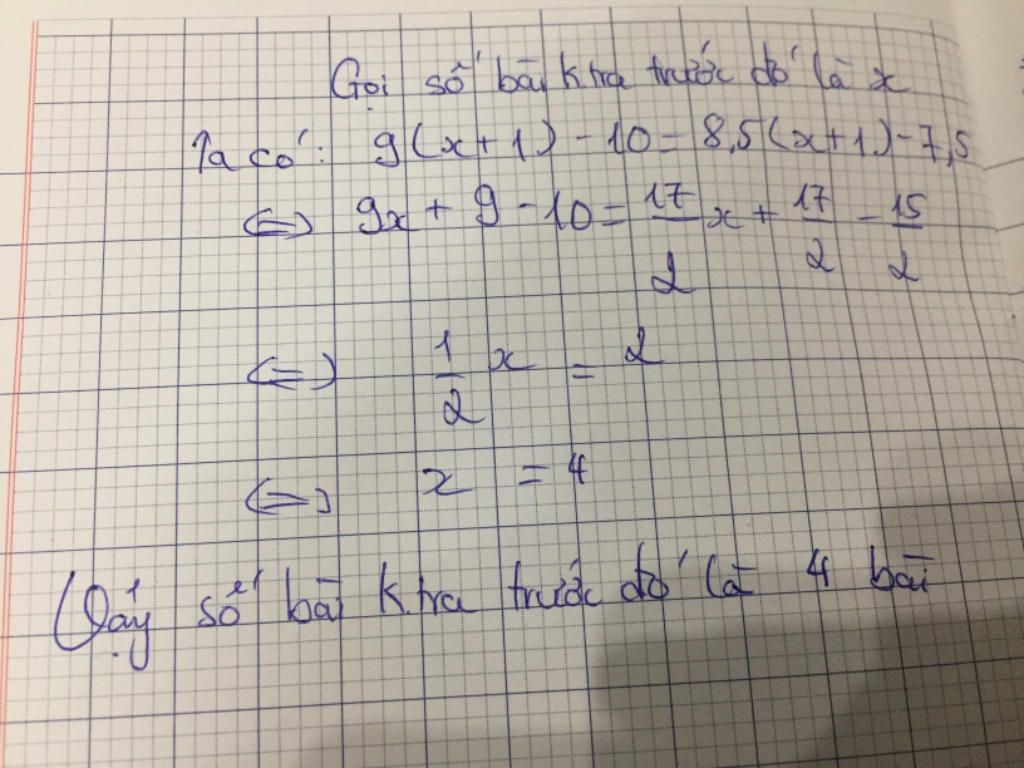 Gọi số bài ktra trước đó là x
Ta có: 9(x+1) - 10 = 8,5(x+1) - 7,5
⇔ 9x + 9 - 10 = 17/2 x + 17/2 - 15/2
⇔ 1/2 x = 2
⇔ x = 4
Vậy số bài ktra trước đó là 4 bài